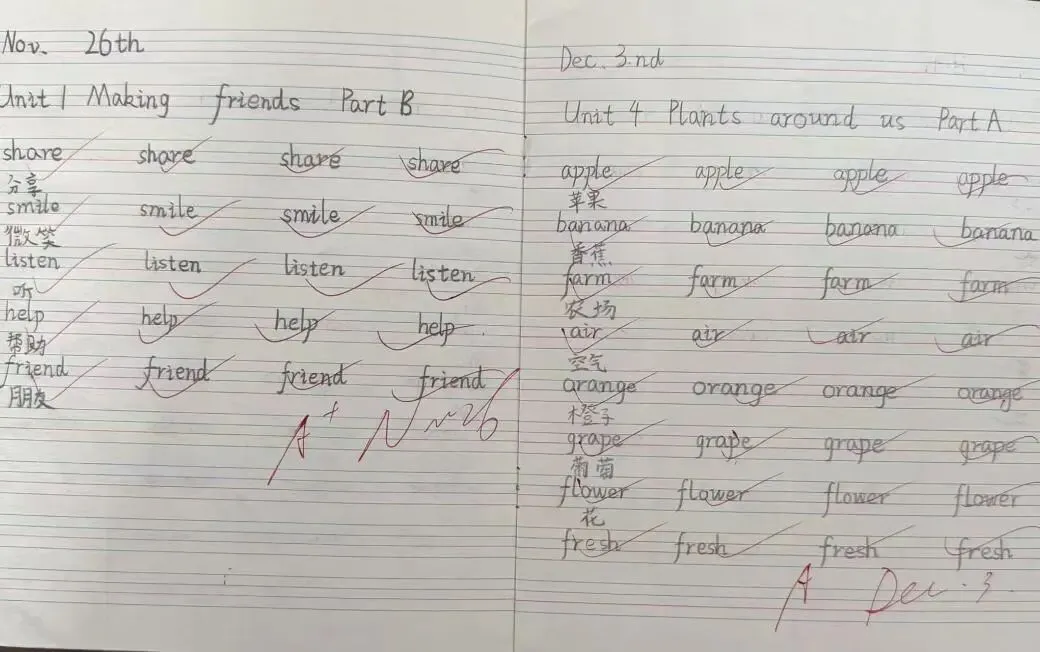 Nov. 26th
Unit 1 Making friends Part B
share share share share
分享
smile smile smile smile
微笑
listen listen listen listen
听
help help help help
帮助
friend friend friend friend
朋友
A+ Nov 26
Dec. 3.nd
Unit 4 Plants around us Part A
apple apple apple apple
苹果
banana banana banana banana
香蕉
farm farm farm farm
农场
air air air air
空气
orange orange orange orange
橙子
grape grape grape grape
葡萄
flower flower flower flower
花
fresh fresh fresh fresh
A Dec. 3.